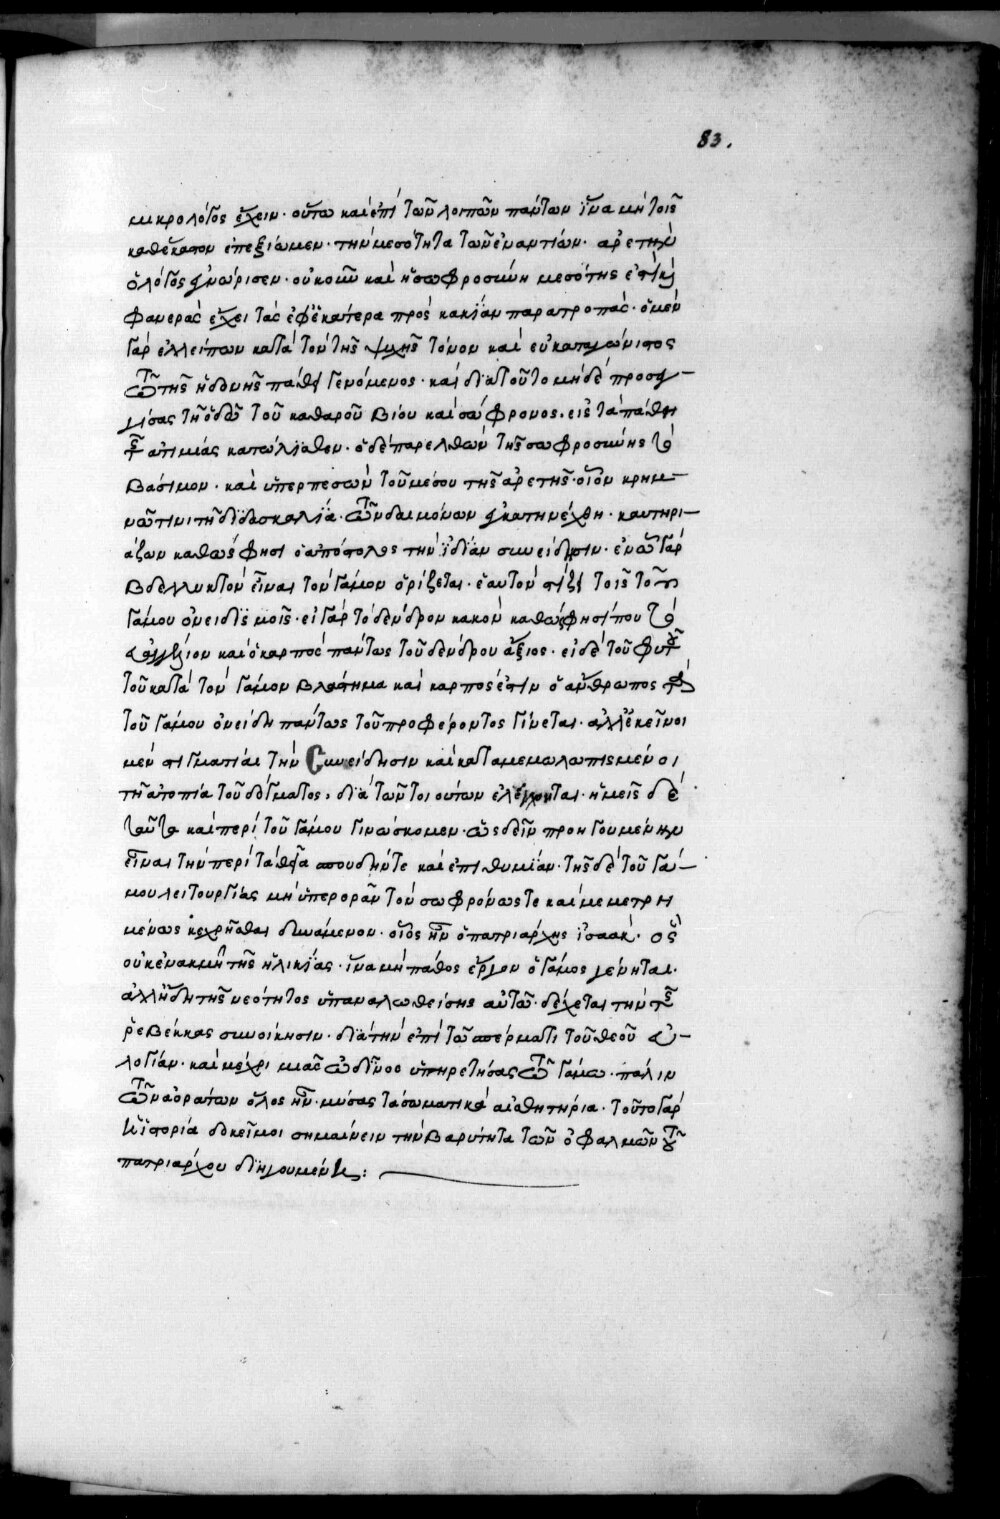 83.
μικρολόγος ἔχειν· οὕτω καὶ ἐπὶ τῶν λοιπῶν πάντων ἵνα μὴ τοῖς
καθέκαστον ἐπεξίωμεν· τὴν μεσότητα τῶν ἐναντίων· ἀρετὴν
ὁ λόγος ἐγνώρισεν· οὐκοῦν καὶ ἡ σωφροσύνη μεσότης ἐστὶ καὶ
φανερὰς ἔχει τὰς ἐφ' ἑκάτερα πρὸς κακίαν παρατροπάς· ὁ μὲν
γὰρ ἐλλείπων κατὰ τὸν τῆς ψυχῆς τόνον καὶ εὐκαταγώνιστος
τῷ τῆς ἡδονῆς πάθει γενόμενος· καὶ διὰ τοῦτο μηδὲ προσεγ-
γίσας τῇ ὁδῷ τοῦ καθαροῦ βίου καὶ σώφρονος· εἰς τὰ πάθη
τῆς ἀτιμίας κατώλισθεν· ὁ δὲ παρελθὼν τῆς σωφροσύνης τὸ
βάσιμον· καὶ ὑπερπεσὼν τοῦ μέσου τῆς ἀρετῆς· οἷον κρημ-
νῷ τινι τῇ διδασκαλίᾳ· τῶν δαιμόνων ἐγκατηνέχθη· καυτηρι-
άζων καθώς φησι ὁ ἀπόστολος τὴν ἰδίαν συνείδησιν· ἐν ᾧ γὰρ
βδελυκτὸν εἶναι τὸν γάμον ὁρίζεται· ἑαυτὸν στίζει τοῖς τοῦ
γάμου ὀνειδισμοῖς· εἰ γὰρ τὸ δένδρον κακὸν καθώς φησί που τὸ
εὐαγγέλιον καὶ ὁ καρπὸς πάντως τοῦ δένδρου ἄξιος· εἰ δὲ τοῦ φυτοῦ
τοῦ κατὰ τὸν γάμον βλάστημα καὶ καρπός ἐστιν ὁ ἄνθρωπος τὰ
τοῦ γάμου ὀνείδη πάντως τοῦ προφέροντος γίνεται· ἀλλ' ἐκεῖνοι
μὲν στιγματίαι τὴν Συνείδησιν καὶ καταμεμωλωπισμένοι
τῇ ἀτοπίᾳ τοῦ δόγματος· διὰ τῶν τοιούτων ἐλέγχονται· ἡμεῖς δὲ
ταῦτα καὶ περὶ τοῦ γάμου γινώσκομεν· ὡς δεῖν προηγουμένην
εἶναι τὴν περὶ τὰ θεῖα σπουδήν τε καὶ ἐπιθυμίαν· τῆς δὲ τοῦ γά-
μου λειτουργίας μὴ ὑπερορᾶν τὸν σωφρόνως τε καὶ μεμετρη
μένως κεχρῆσθαι δυνάμενον· οἷος ἦν ὁ πατριάρχης ἰσαάκ· ὃς
οὐκ ἐν ἀκμῇ τῆς ἡλικίας· ἵνα μὴ πάθος ἔργον ὁ γάμος γένηται·
ἀλλ' ἤδη τῆς νεότητος ὑπαναλωθείσης αὐτῷ· δέχεται τὴν τῆς
ῥεβέκκας συνοίκησιν· διὰ τὴν ἐπὶ τῷ σπέρματι τοῦ θεοῦ εὐ-
λογίαν· καὶ μέχρι μιᾶς ὠδῖνος ὑπηρετήσας τῷ γάμῳ· πάλιν
τῶν ἀοράτων ὅλος ἦν· μύσας τὰ σωματικὰ αἰσθητήρια· τοῦτο γάρ
ἡ ἱστορία δοκεῖ μοι σημαίνειν τὴν βαρύτητα τῶν ὀφαλμῶν τοῦ
πατριάρχου διηγουμένη: